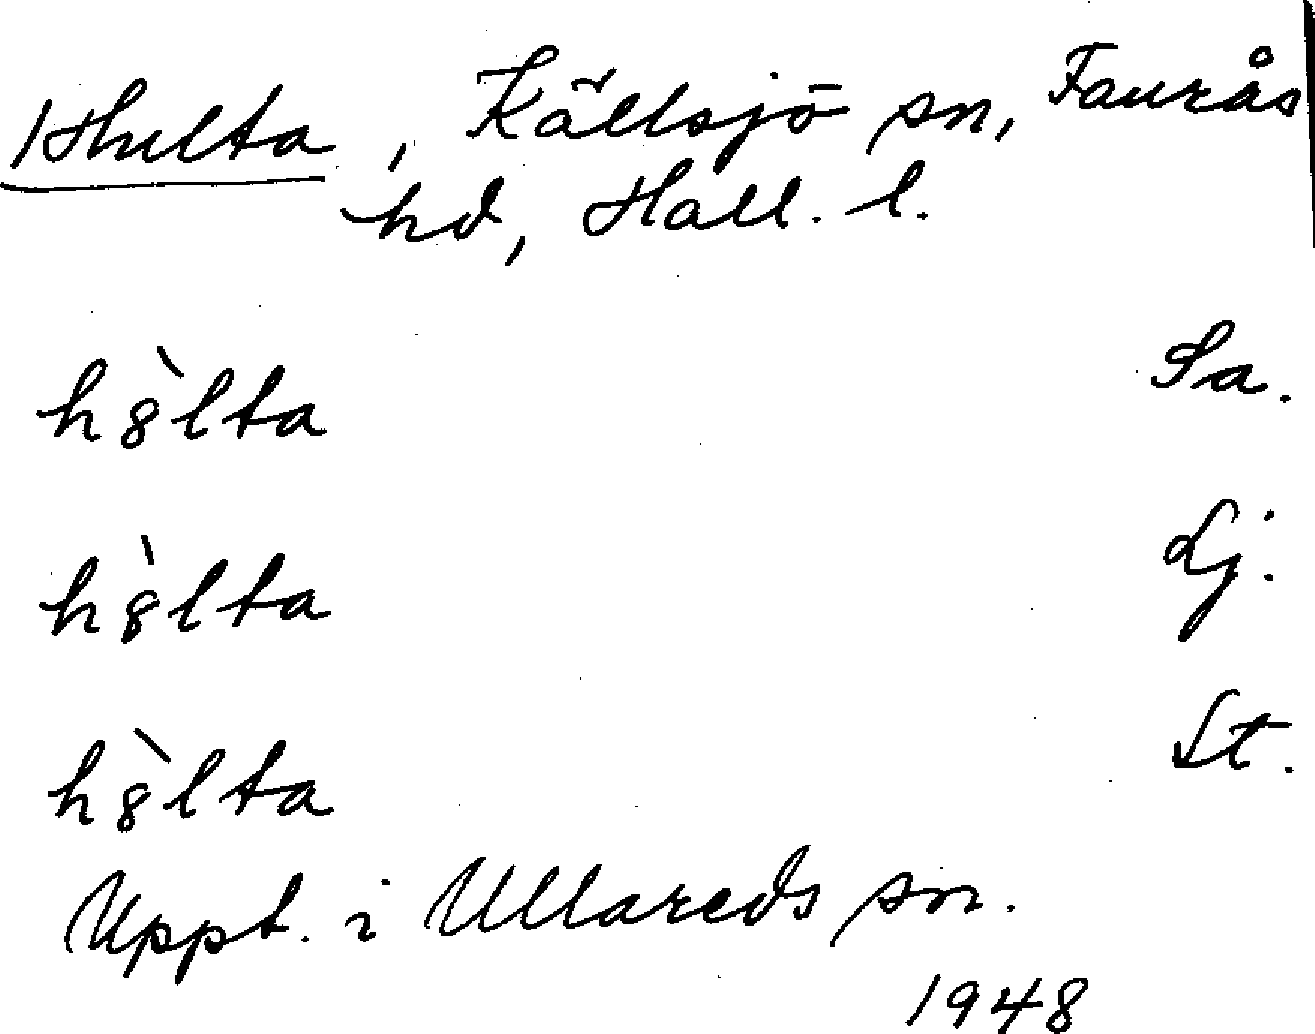 Hulta, Källsjö sn, Faurås
hd, Hall. l.
hȣ̀lta Sa.
hȣ̀lta Lj.
hȣ̀lta St.
Uppt. i Ullareds sn.
1948